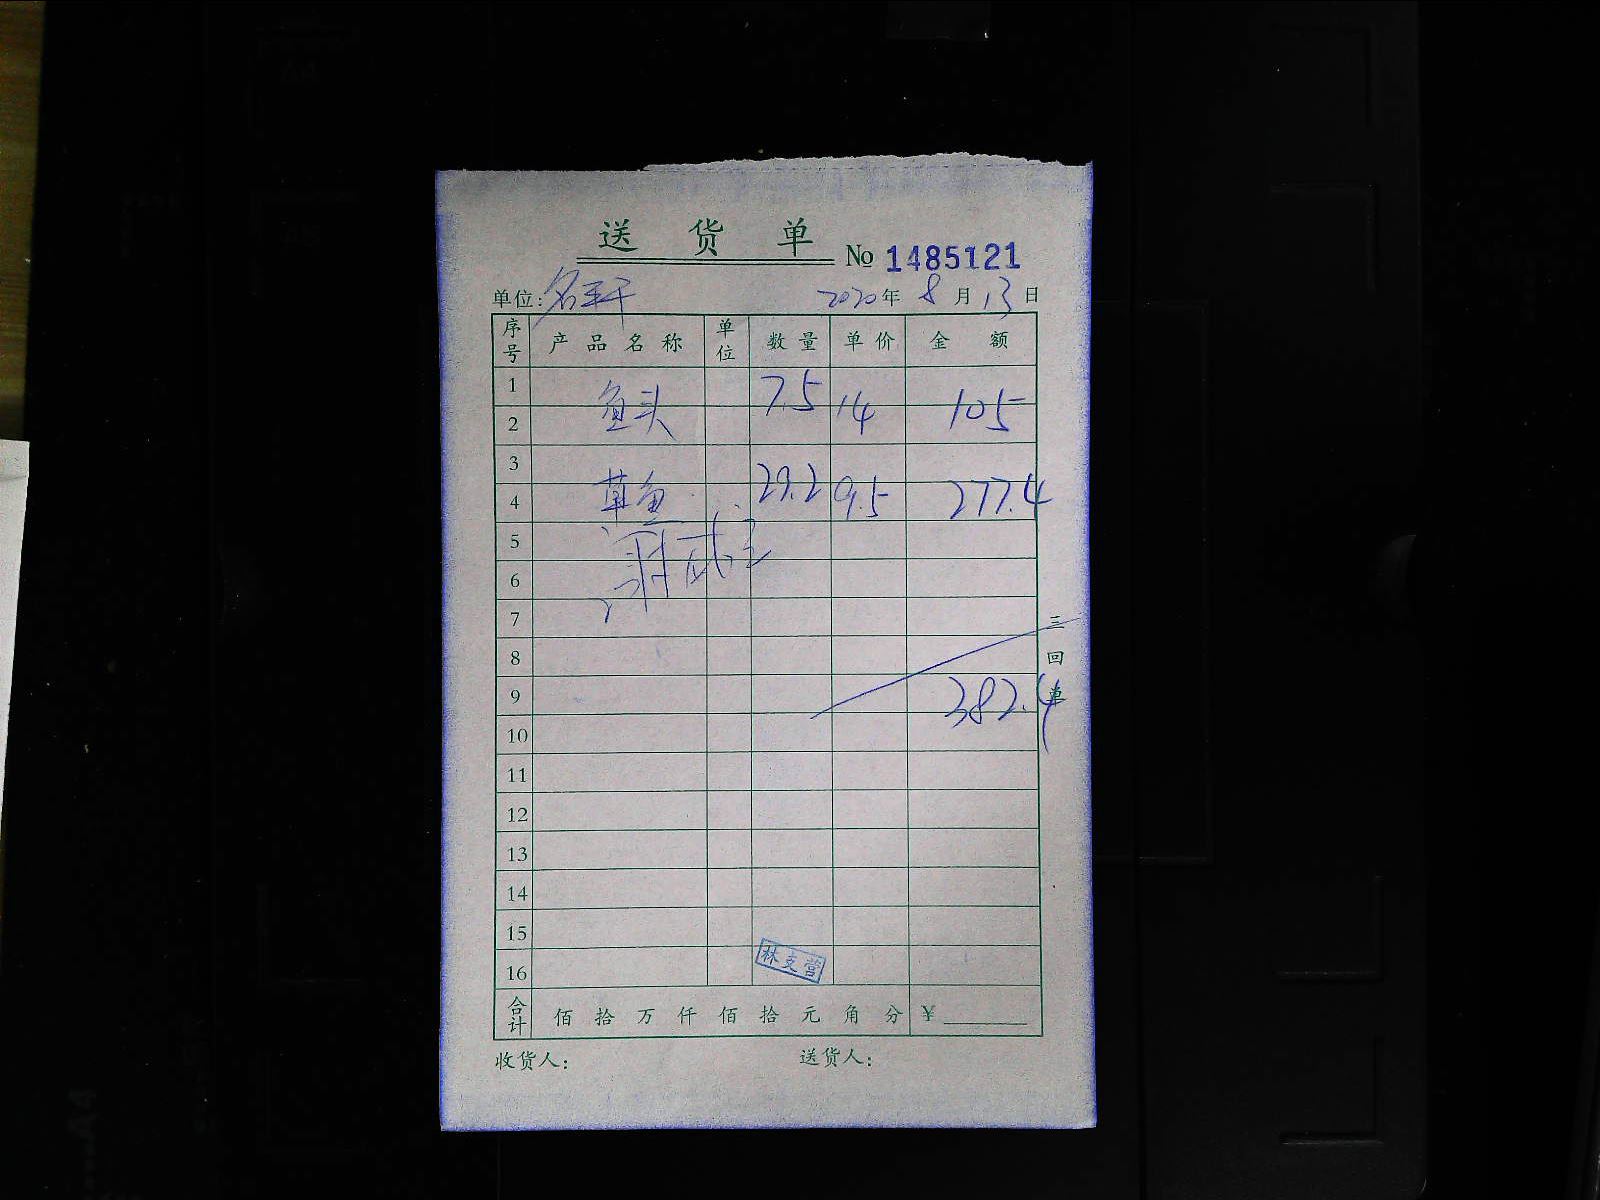 送货单
No 1485121
单位: 2020年 8月 13日
序号 产品名称 单位 数量 单价 金额
1 鱼头 7.5 14 105
2
3
4 草鱼 29.2 9.5 277.4
5
6
7
三
8
回
9 382.4
单
10
11
12
13
14
15
林支营
16
合计 佰拾万仟佰拾元角分 ¥
收货人: 送货人: